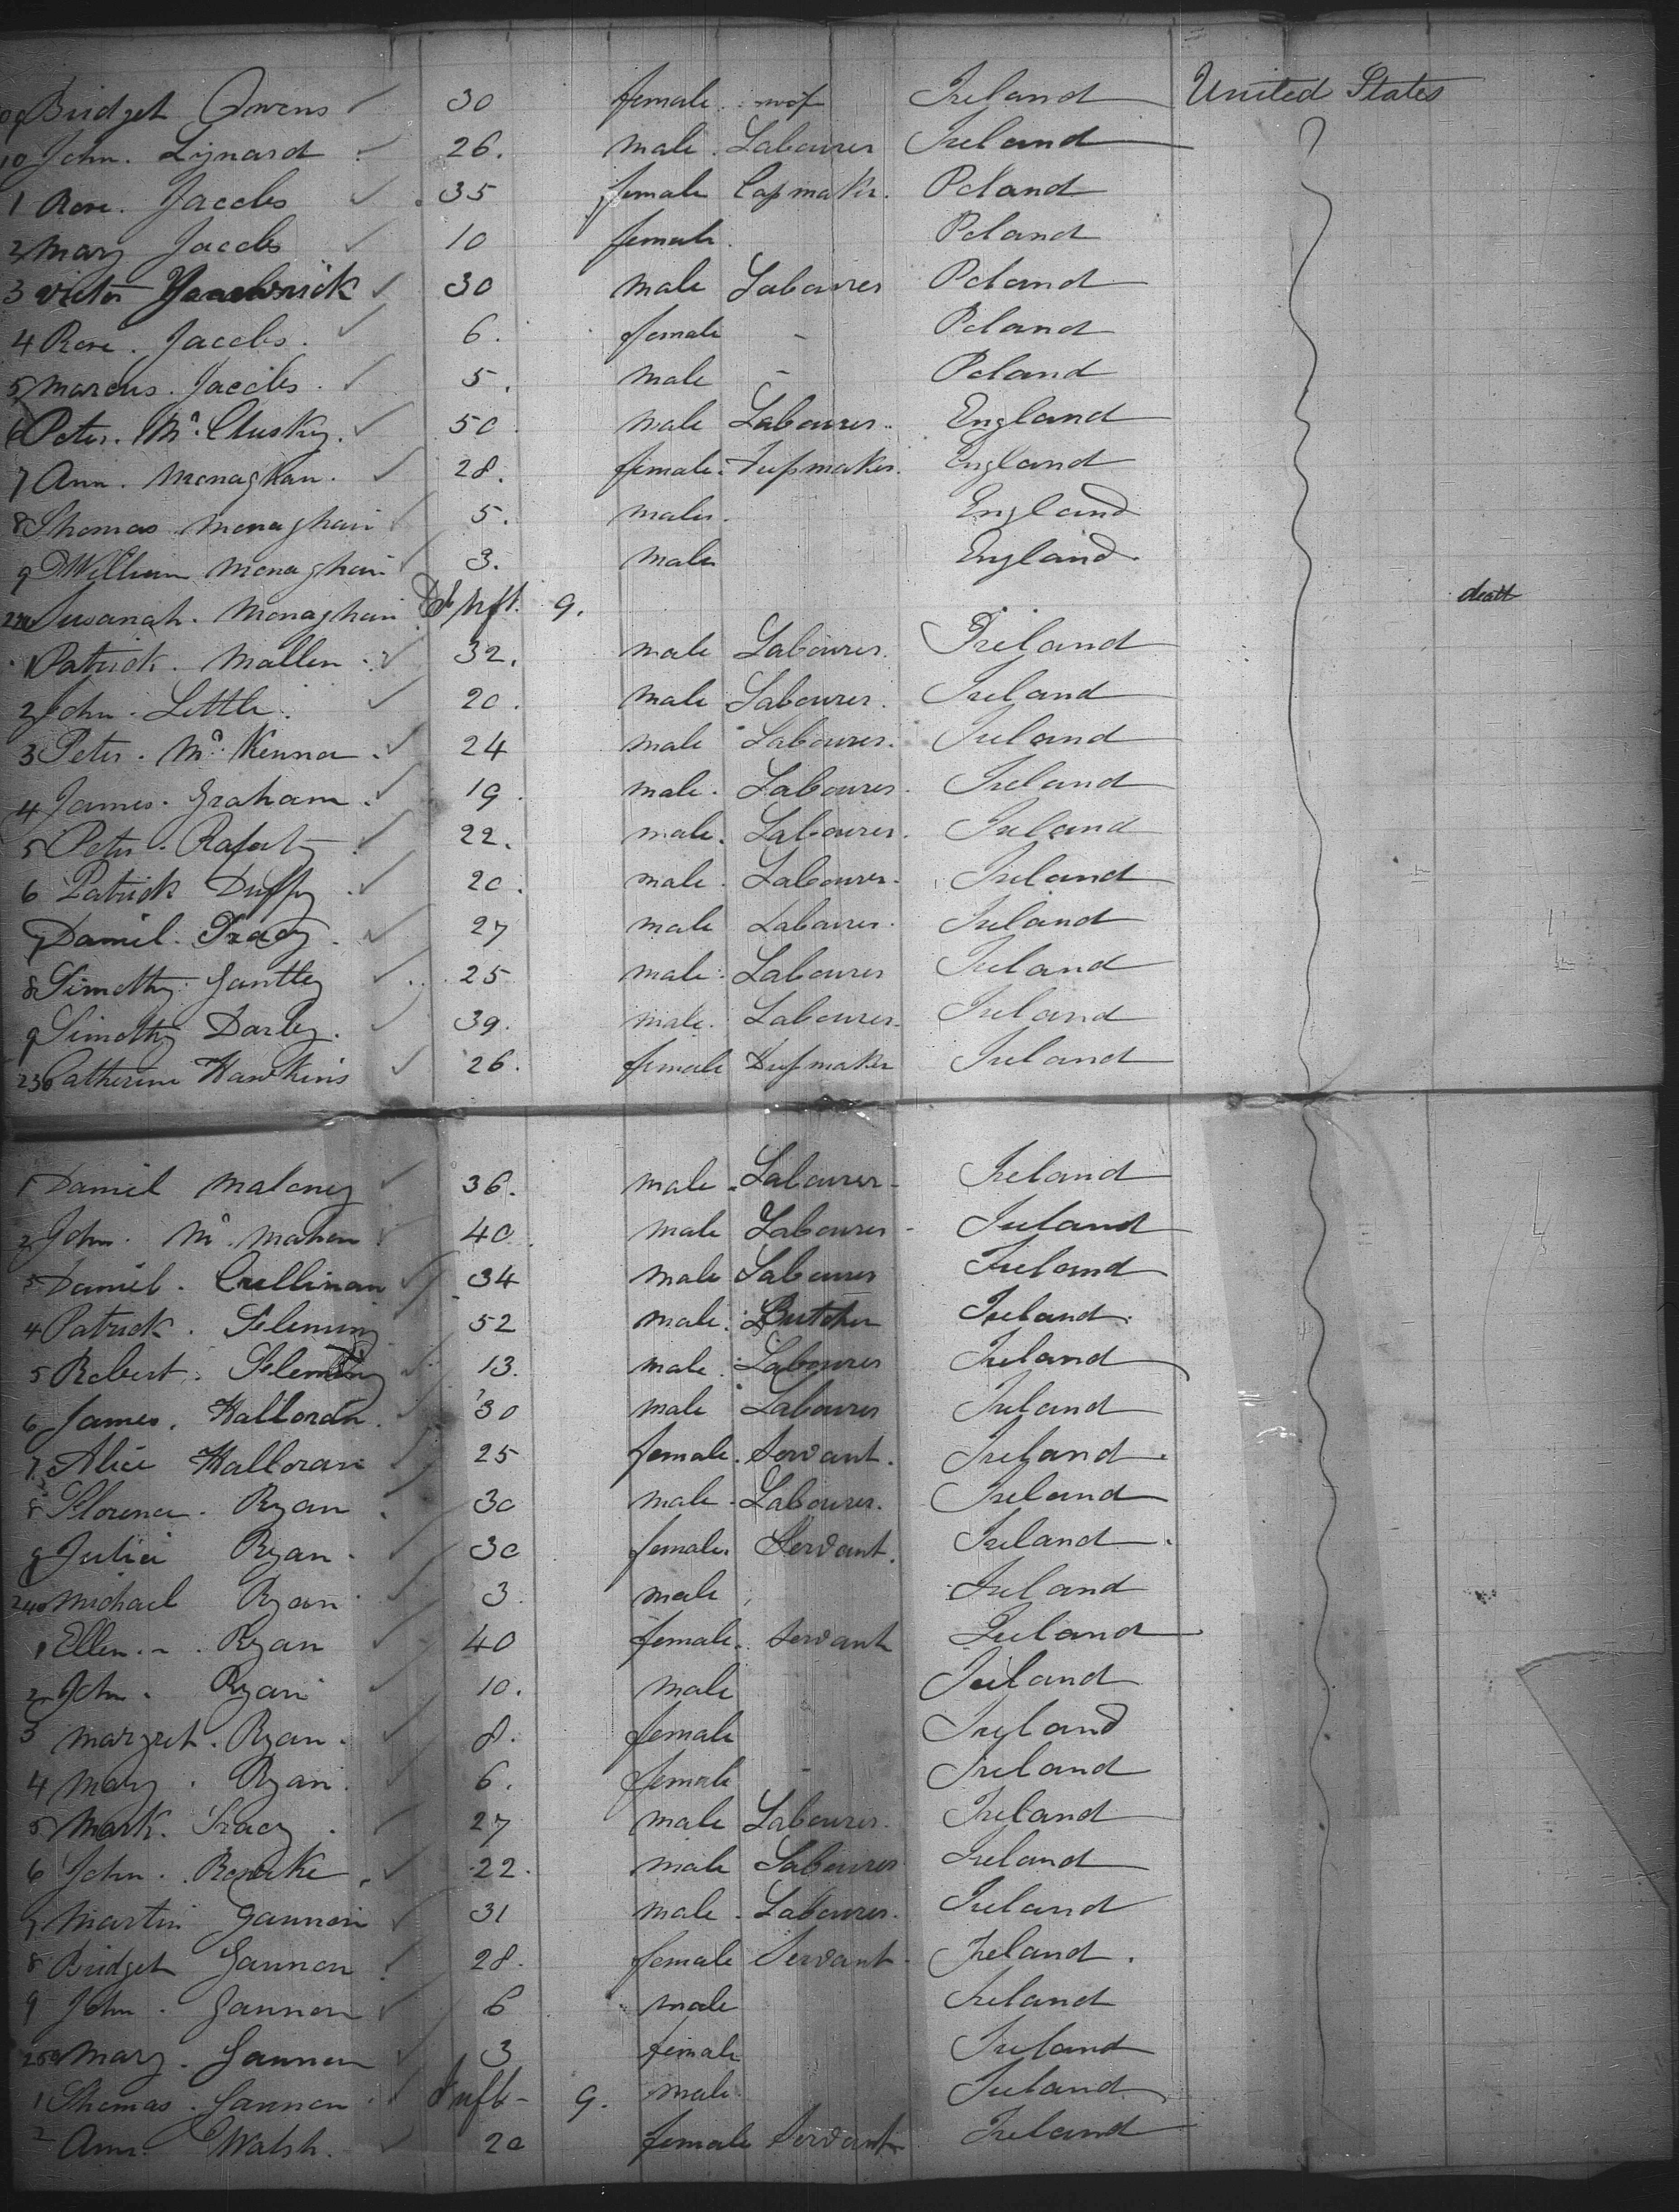 09 Bridget Owens 30 female wif Ireland United States
10 John. Lynard 26. male Labourer Ireland
1 Rose. Jacobs 35 female Capmaker. Poland
2 Mary Jacobs 10 female. Poland
3 Victor 30 male Labourer Poland
4 Rose. Jacobs. 6. female - Poland
5 Marcus. Jacobs. 5. male - Poland
6 Peter. Mc. Clusky. 50 male Labourer. England
7 Ann. Monaghan. 28. female. England
8 Thomas Monaghan 5. male. England
9 William Monaghan 3. male England
220 Susanah. Monaghan Inft. 9. death
1 Patrick. Mallen. 32. male Labourer. Ireland
2 John. Little. 20. male Labourer. Ireland
3 Peter. Mc. Kenna. 24 male Labourer. Ireland
4 James. Graham. 19. male. Labourer. Ireland
5 Peter. Raferty 22. male. Labourer. Ireland
6 Patrick Duffy 20. male. Labourer. Ireland
7 Daniel. Tracy. 27 male Labourer. Ireland
8 Timothy. Gantley 25 male. Labourer Ireland
9 Timothy Darley. 39. male. Labourer. Ireland
230 Catherine Hawkins 26. female Ireland
1 Daniel Maloney 36. male. Labourer. Ireland
2 John. Mc. Mahon 40. male Labourer Ireland
3 Daniel. Cullinan 34 male Labourer Ireland
4 Patrick. Fleming 52 male. Butcher Ireland.
5 Robert. Fleming 13. male. Labourer Ireland
6 James. Halloran. 30 male Labourer Ireland
7 Alice Halloran 25 female. Servant. Ireland.
8 Florence. Ryan 30 male. Labourer. Ireland
9 Julia Ryan. 30 female Servant. Ireland.
240 Michael Ryan 3. male Ireland
1 Ellen. Ryan 40 female. Servant Ireland
2 John. Ryan 10. male Ireland
3 Margret. Ryan. 8. female Ireland
4 Mary. Ryan. 6. female - Ireland
5 Mark. Tracy. 27 male Labourer. Ireland
6 John. Rourke. 22. male Labourer Ireland
7 Martin Gannon 31 male. Labourer. Ireland
8 Bridget Gannon 28. female Servant. Ireland.
9 John. Gannon 6 male Ireland
250 Mary. Gannon 3 female Ireland
1 Thomas. Gannon Inft- 9. male. Ireland
2 Ann. Walsh. 20 female Servant Ireland